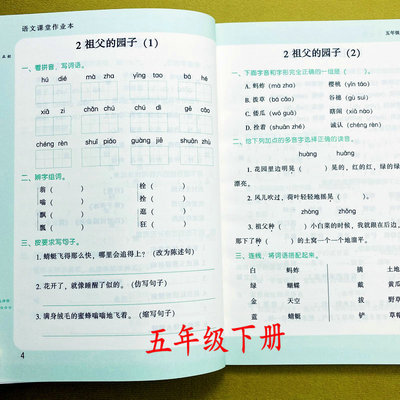 语文课堂作业本
2 祖父的园子（1）
一、看拼音，写词语。
hú dié mà zha yīng tao bá
chéng rèn shuǐ piáo guàng jiē shuān zhù
二、辨字组词。
蒴（ ） 拴（ ）
嗡（ ） 栓（ ）
瓢（ ） 逛（ ）
飘（ ） 狂（ ）
三、按要求写句子。
1. 蜻蜓飞得那么快，哪里会追得上？（改为陈述句）
2. 花开了，就像睡醒了似的。（仿写句子）
3. 满身绒毛的蜜蜂嗡嗡地飞着。（缩写句子）
4
五年级
2 祖父的园子（2）
一、下面字音和字形完全正确的一组是（ ）。
A. 蚂蚱（mà zha） 樱桃（yīn táo）
B. 拔草（bá cǎo） 谷穗（gǔ suì）
C. 倭瓜（wō guā） 瞎闹（xiā nào）
D. 拴着（shuān zhe） 诚认（chéng rèn）
二、给下列加点的多音字选择正确的读音。
huāng huàng
1. 花园里边明晃（ ）的，红的红，绿的绿，
漂亮。
2. 风儿吹过，荷叶轻轻地摇晃（ ）。
zhǒng zhòng
3. 祖父种（ ）小白菜的时候，我就跟在后边，
那下了种（ ）的土窝一个一个地溜平。
三、连线，将词语搭配起来。
白 蚂蚱 摘 土地
绿 蝴蝶 戴 黄瓜
金 天空 拔 野草
蓝 蜻蜓 铲 草帽
五年级下册